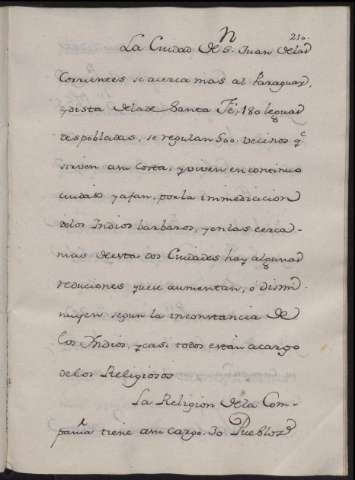 N
210.
La Ciudad de S. Juan delas
Corrientes se acerca mas al Paraguay,
y dista dela de Santa Fé, 180 leguas
despobladas, se regulan 500. vecinos q.^
sirven a su costa, y viven en continuo
cuidado y afan, por la inmediacion
delos Indios barbaros, y en las cerca-
nias de estas dos Ciudades hay algunas
reduciones que se aumentan, ó dismi-
nuyen segun la inconstancia de
los Indios, y casi todos están a cargo
de los Religiosos
La Religion dela Com-
pañia tiene a su cargo 30 Pueblos